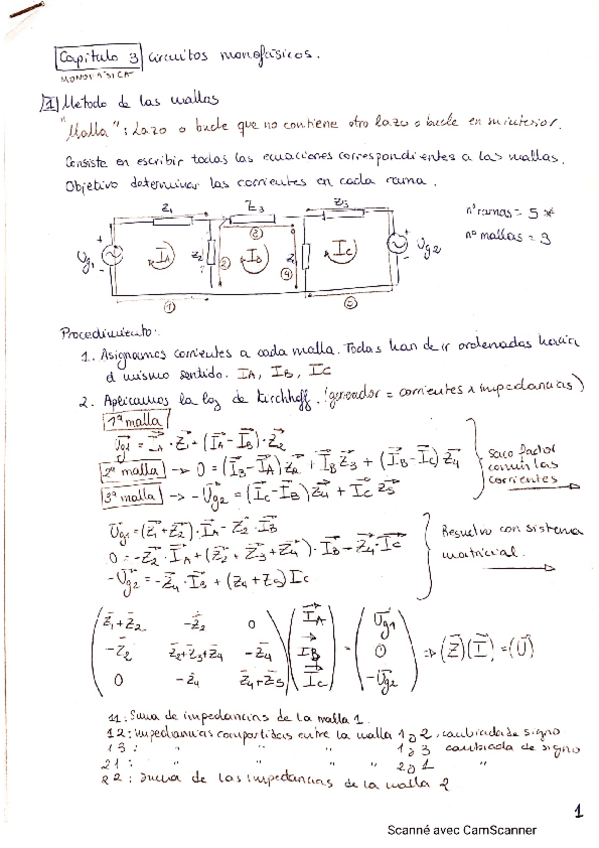 Capitulo 3 circuitos monofásicos.
MONOFÁSICA
1 Metodo de las mallas
"Malla": Lazo o bucle que no contiene otro lazo o bucle en su interior.
Consiste en escribir todas las ecuaciones correspondientes a las mallas.
Objetivo determinar las corrientes en cada rama.
Z1 Z3 Z5
nº ramas = 5 *
nº mallas = 3
Ug1 IA Z2 IB IC Ug2
① ② ③ ④ ⑤
Procedimiento:
1. Asignamos corrientes a cada malla. Todas han de ir ordenadas hacia
el mismo sentido. IA, IB, IC
2. Aplicamos la ley de Kirchhoff. (generador = corrientes x impedancias)
1ª malla
Ug1 = IA · Z1 + (IA - IB) · Z2
2ª malla -> 0 = (IB - IA) Z2 + IB Z3 + (IB - IC) Z4
3ª malla -> -Ug2 = (IC - IB) Z4 + IC Z5
Saco factor
común las
corrientes
Ug1 = (Z1 + Z2) · IA - Z2 · IB
0 = -Z2 · IA + (Z2 + Z3 + Z4) · IB - Z4 · IC
-Ug2 = -Z4 · IB + (Z4 + Z5) IC
Resuelvo con sistema
matricial.
Z1+Z2 -Z2 0 IA Ug1
-Z2 Z2+Z3+Z4 -Z4 IB = 0 => (Z)(I) = (U)
0 -Z4 Z4+Z5 IC -Ug2
11: Suma de impedancias de la malla 1.
12: impedancias compartidas entre la malla 1 y 2, cambiada de signo
13: " " " 1 y 3 cambiada de signo
21: " " " 2 y 1 "
22: Suma de las impedancias de la malla 2
1
Scanné avec CamScanner